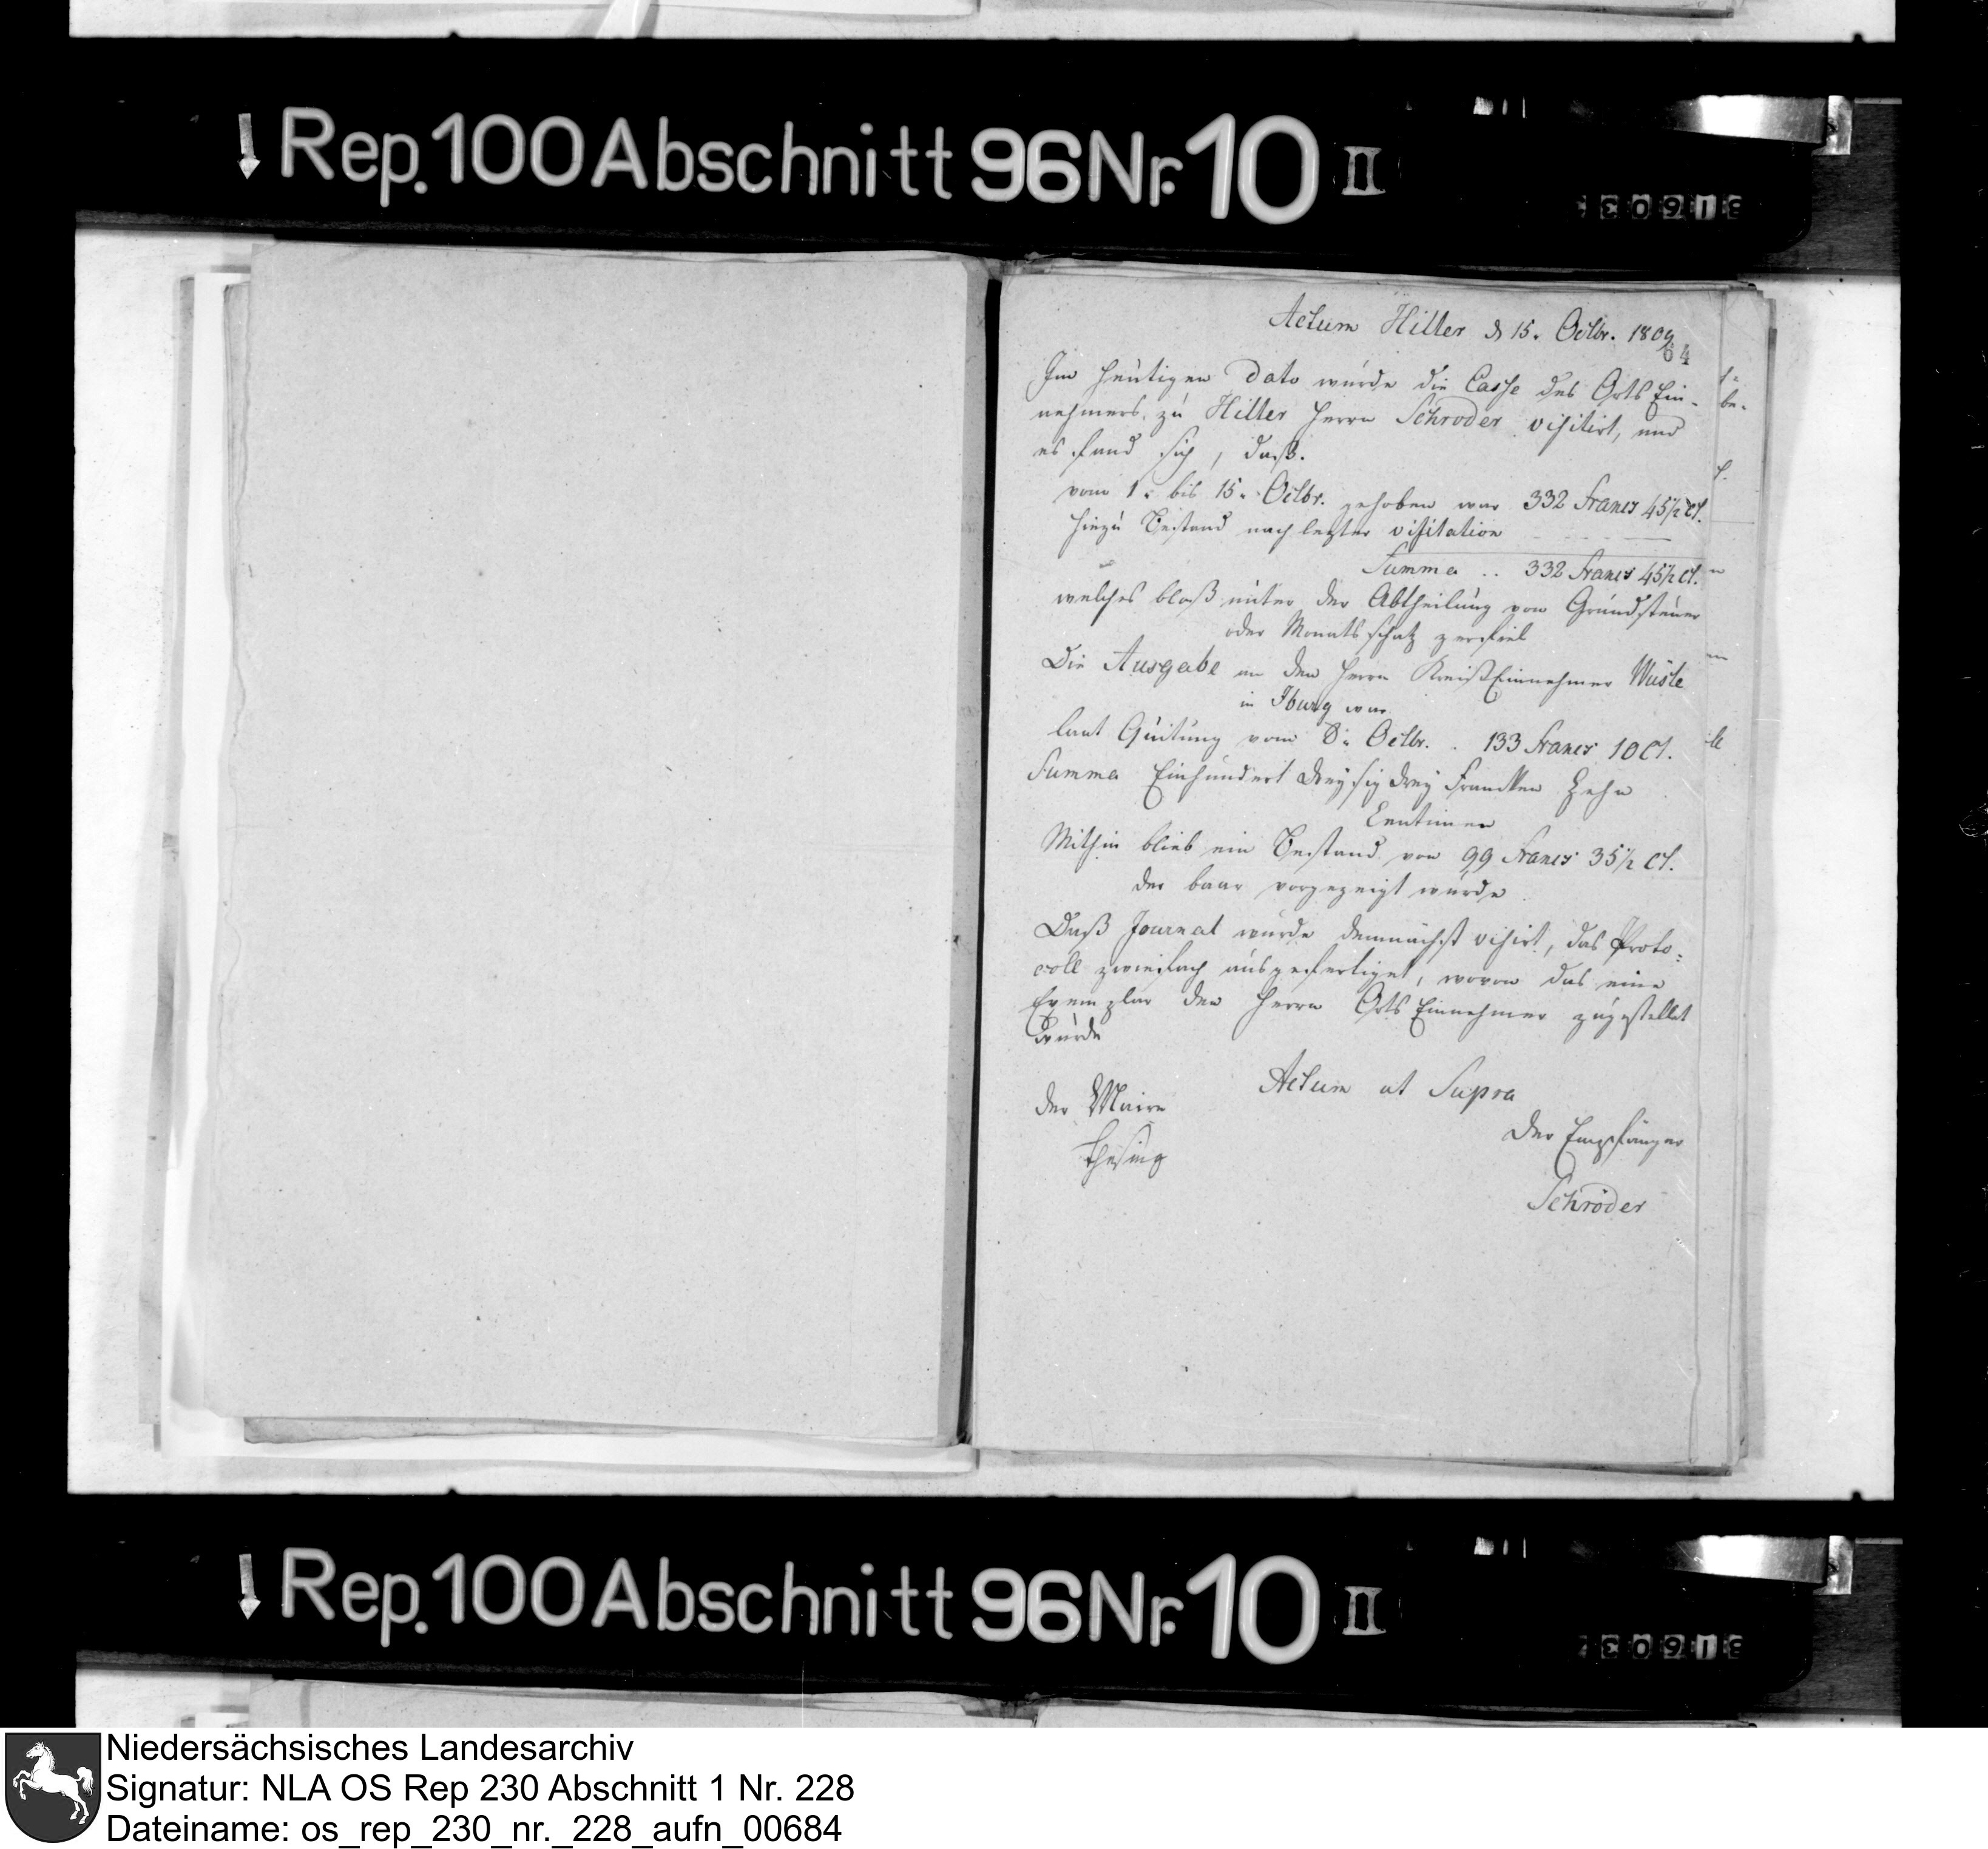 Rep. 100 Abschnitt 96 Nr. 10 II
Actum Hilter d 15. Octbr. 1809
64
Im heutigen Dato wurde die Casse des Orts Ein-
nehmers zu Hilter Herrn Schroder visitirt, und
es fand sich, daß.
vom 1. bis 15. Octbr. gehoben war 332 Francs 45 1/2 Ct.
hiezu Bestand nach lezter visitation
Summa .. 332 Francs 45 1/2 Ct.
welches bloß unter der Abtheilung von Grundsteuer
oder Monatsschatz zerfiel
Die Ausgabe an den Herrn Kreis Einnehmer Wüste
in Iburg war
laut Quitung vom 8. Octbr. . 133 Francs 10 Ct.
Summa Einhundert Dreysig drey Francken Zehn
Centimen
Mithin blieb ein Bestand von 99 Francs 35 1/2 Ct.
der baar vorgezeigt wurde
Daß Journal wurde demnächst visirt, das Proto=
coll zwiefach ausgefertiget, wovon das eine
Exemplar den Herrn Orts Einnehmer zugestellet
wurde
Actum ut Supra
der Maire
Thesing
Der Empfänger
Schröder
Rep. 100 Abschnitt 96 Nr. 10 II
Niedersächsisches Landesarchiv
Signatur: NLA OS Rep 230 Abschnitt 1 Nr. 228
Dateiname: os_rep_230_nr._228_aufn_00684